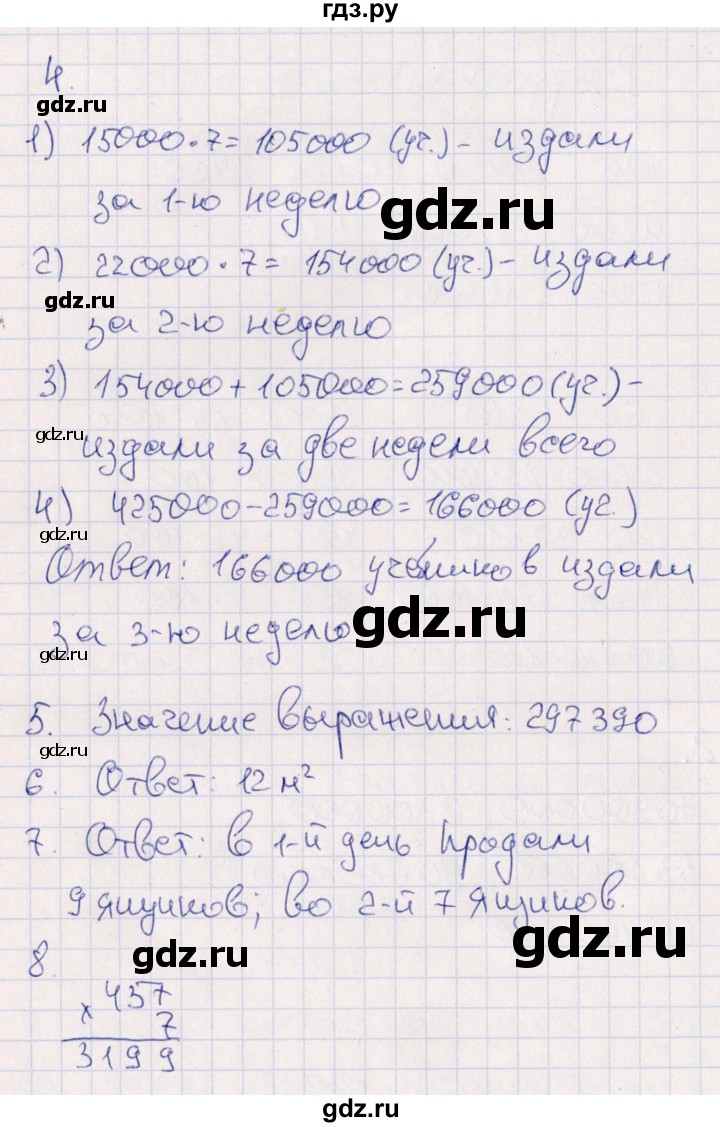 гдз.ру
4.
gdz.ru
1) 15000·7=105000 (уч.) – издали
за 1-ю неделю
gdz.ru
2) 22000·7=154000 (уч.) – издали
gdz.ru
за 2-ю неделю
3) 154000+105000=259000 (уч.) –
gdz.ru
издали за две недели всего
4) 425000–259000=166000 (уч.)
gdz.ru
Ответ: 166000 учебников издали
за 3-ю неделю
gdz.ru
gdz.ru
5. Значение выражения: 297390
gdz.ru
6. Ответ: 12 м²
7. Ответ: в 1-й день продали
gdz.ru
9 ящиков; во 2-й 7 ящиков.
gdz.ru
8.
gdz.ru
× 457
7
3199
gdz.ru